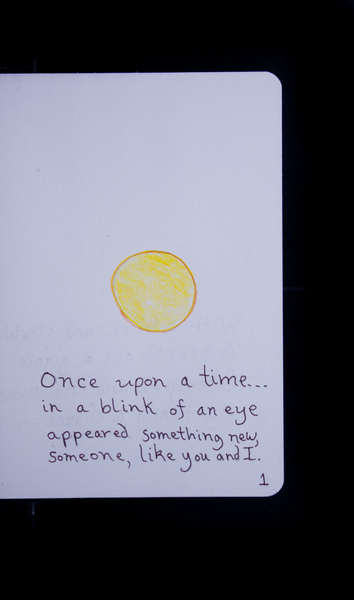 Once upon a time...
in a blink of an eye
appeared something new,
someone, like you and I.
1